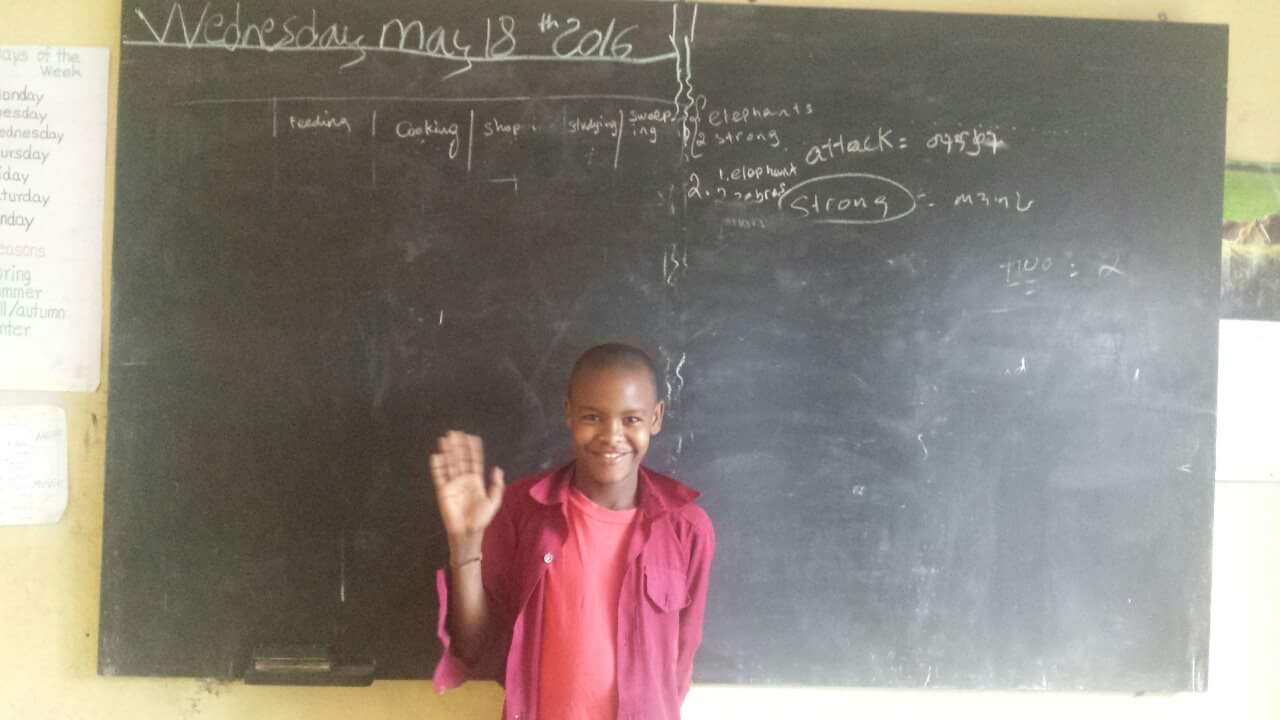 Wednesday May 18th 2016
Feeding Cooking shop studying sweep-
ing
elephants
2 strong
attack =
2. 1. elephant
2 zebras
strong =
two = 2
ays of the
week
onday
uesday
ednesday
ursday
iday
turday
nday
easons
ring
mmer
ll/autumn
nter